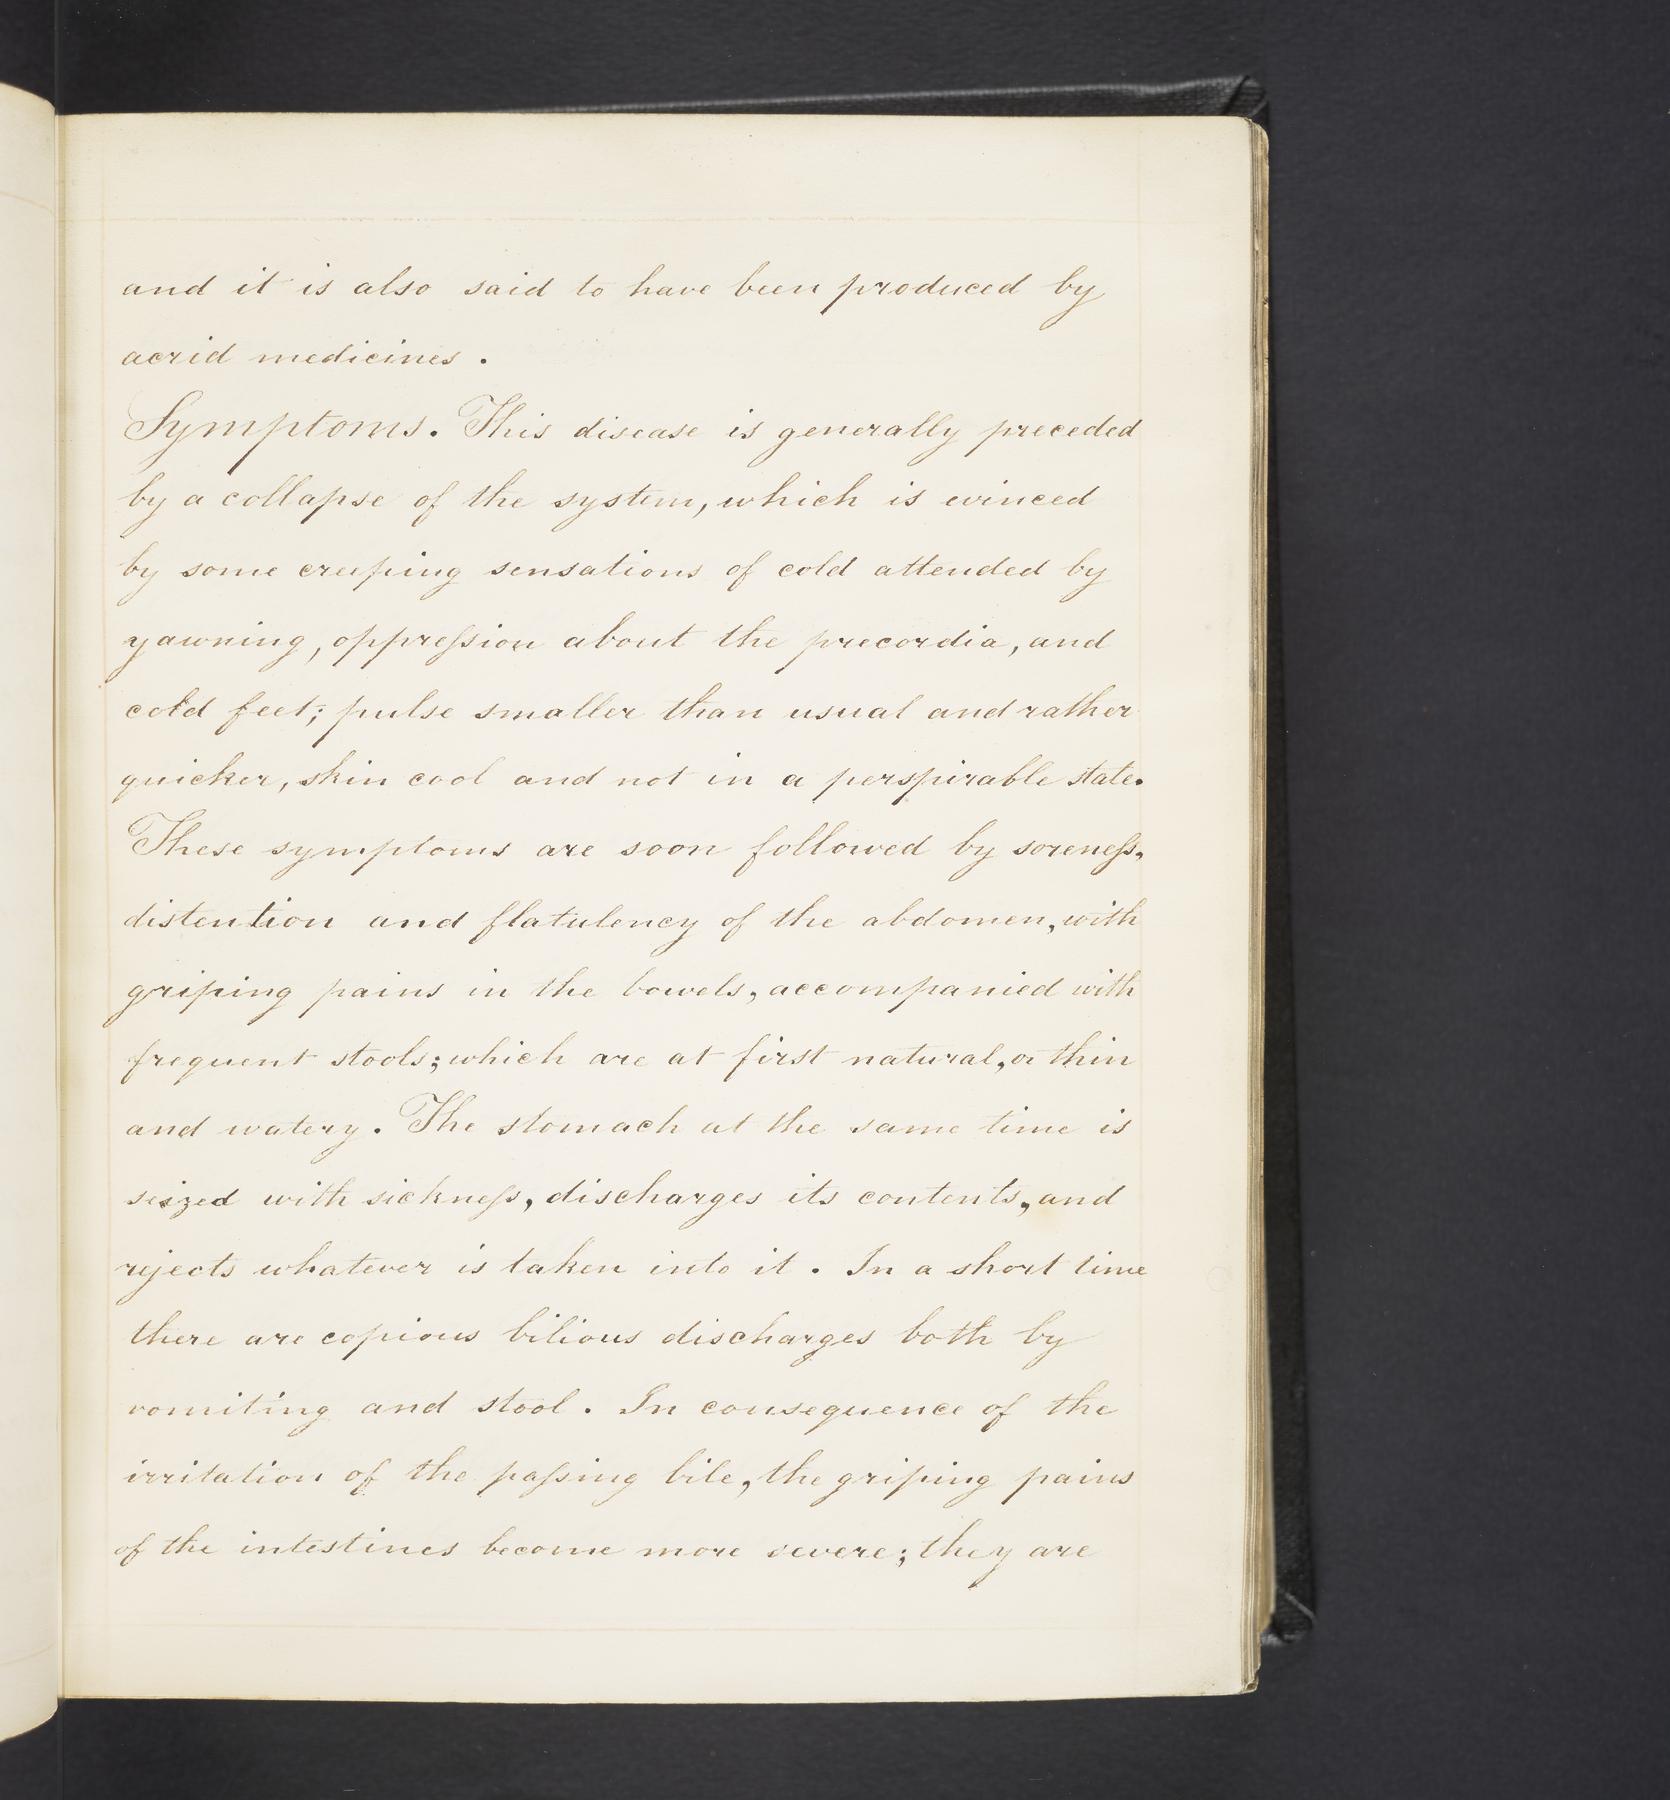 and it is also said to have been produced by
acrid medicines .
Symptoms. This disease is generally preceded
by a collapse of the system, which is evinced
by some creeping sensations of cold attended by
yawning, oppreſsion about the precordia, and
cold feet; pulse smaller than usual and rather
quicker, skin cool and not in a perspirable state.
These symptoms are soon followed by soreneſs,
distention and flatulency of the abdomen, with
griping pains in the bowels, accompanied with
frequent stools; which are at first natural, or thin
and watery. The stomach at the same time is
seized with sickneſs, discharges its contents, and
rejects whatever is taken into it . In a short time
there are copious bilious discharges both by
vomiting and stool . In consequence of the
irritation of the paſsing bile, the griping pains
of the intestines become more severe; they are